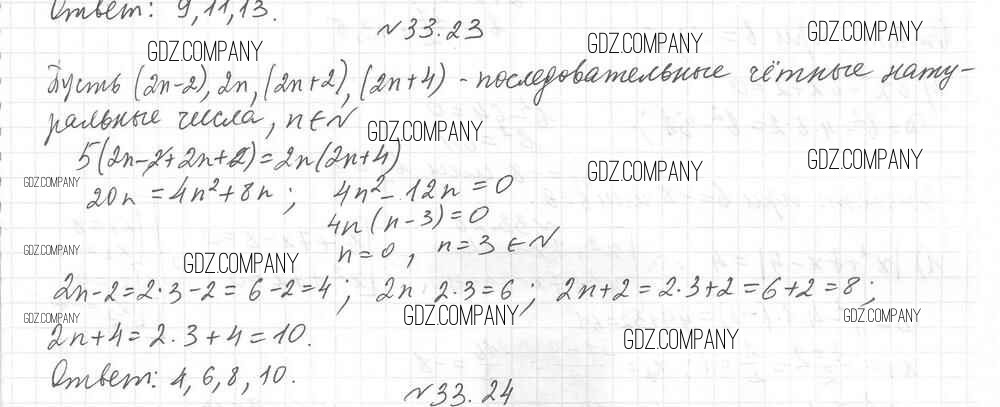 Ответ: 9, 11, 13.
№33.23
GDZ.COMPANY GDZ.COMPANY GDZ.COMPANY
Пусть (2n-2), 2n, (2n+2), (2n+4) - последовательные чётные нату-
ральные числа, n∈N
GDZ.COMPANY
5(2n-2+2n+2)=2n(2n+4)
GDZ.COMPANY GDZ.COMPANY GDZ.COMPANY
20n = 4n²+8n; 4n²- 12n = 0
4n(n-3)=0
n=0, n=3 ∈ N
GDZ.COMPANY GDZ.COMPANY
2n-2=2·3-2=6-2=4; 2n 2·3=6; 2n+2=2·3+2=6+2=8;
GDZ.COMPANY GDZ.COMPANY GDZ.COMPANY
2n+4=2·3+4=10.
GDZ.COMPANY
Ответ: 4, 6, 8, 10.
№33.24